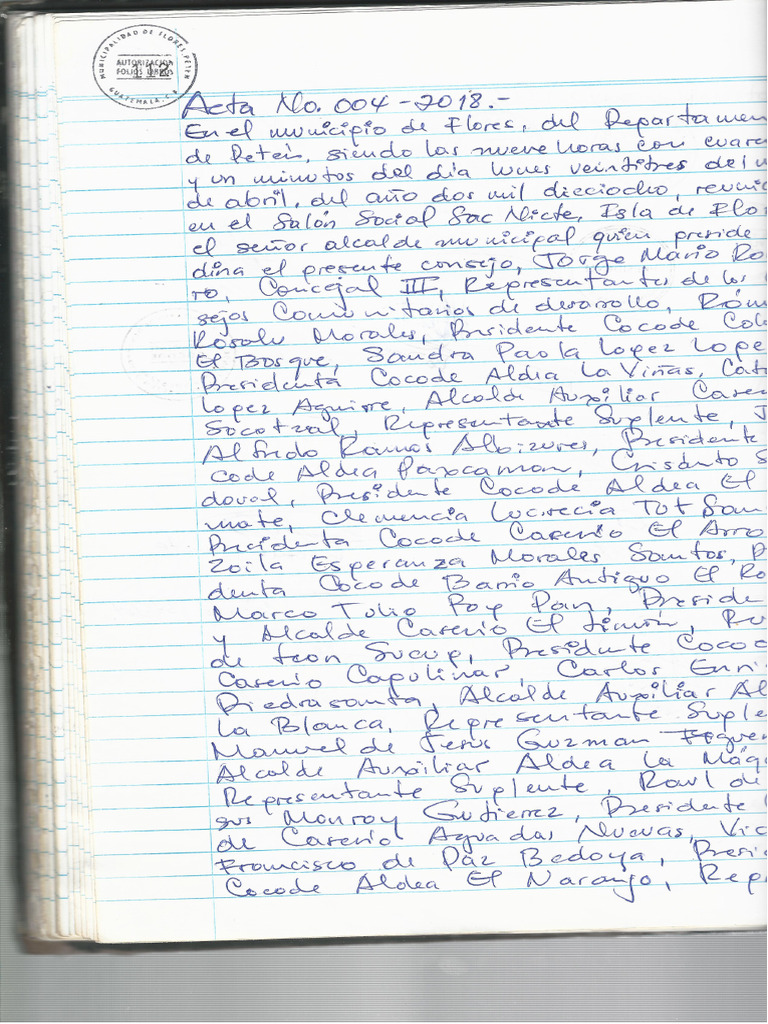 MUNICIPALIDAD DE FLORES, PETEN
AUTORIZACION
FOLIOS LIBROS
112
GUATEMALA, C.A.
Acta No. 004-2018.-
En el municipio de Flores, del Departamen
de Petén, siendo las nueve horas con cuare
y un minutos del día lunes veintitres del m
de abril, del año dos mil dieciocho, reuni
en el Salón Social Sac Nicte, Isla de Flo
el señor alcalde municipal quien preside
dina el presente consejo, Jorge Mario Ro
ro, Concejal III, Representantes de los
sejos Comunitarios de desarrollo, Róm
Rosalu Morales, Presidente Cocode Col
El Bosque, Sandra Paola Lopez Lope
Presidenta Cocode Aldea La Viñas, Cat
Lopez Aguirre, Alcalde Auxiliar Caser
Socotzal, Representante Suplente, J
Alfredo Ramos Albizures, Presidente
code Aldea Paxcaman, Crisanto S
doval, Presidente Cocode Aldea El
mate, Clemencia Lucrecia Tot Sam
Precidenta Cocode Caserio El Arro
Zoila Esperanza Morales Santos, P
denta Cocode Barrio Antiguo El Ro
Marco Tulio Poy Pan, Preside
y Alcalde Caserio El Limón, Ru
de leon Sucup, Presidente Coco
Caserio Capulinar, Carlos Enri
Piedrasanta, Alcalde Auxiliar Al
La Blanca, Representante Suple
Manuel de Jesus Guzman Figuer
Alcalde Auxiliar Aldea La Máq
Representante Suplente, Raul de
sus Monroy Gutierrez, Presidente
de Caserio Aguadas Nuevas, Vic
Francisco de Paz Bedoya, Presi
Cocode Aldea El Naranjo, Repr